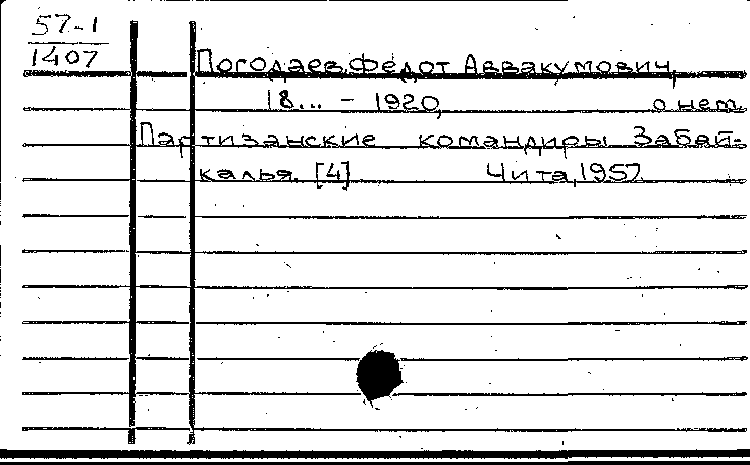 57-1
1407
Погодаев, Федот Аввакумович,
18... - 1920, о нем.
Партизанские командиры Забай-
калья. [4] Чита, 1957.